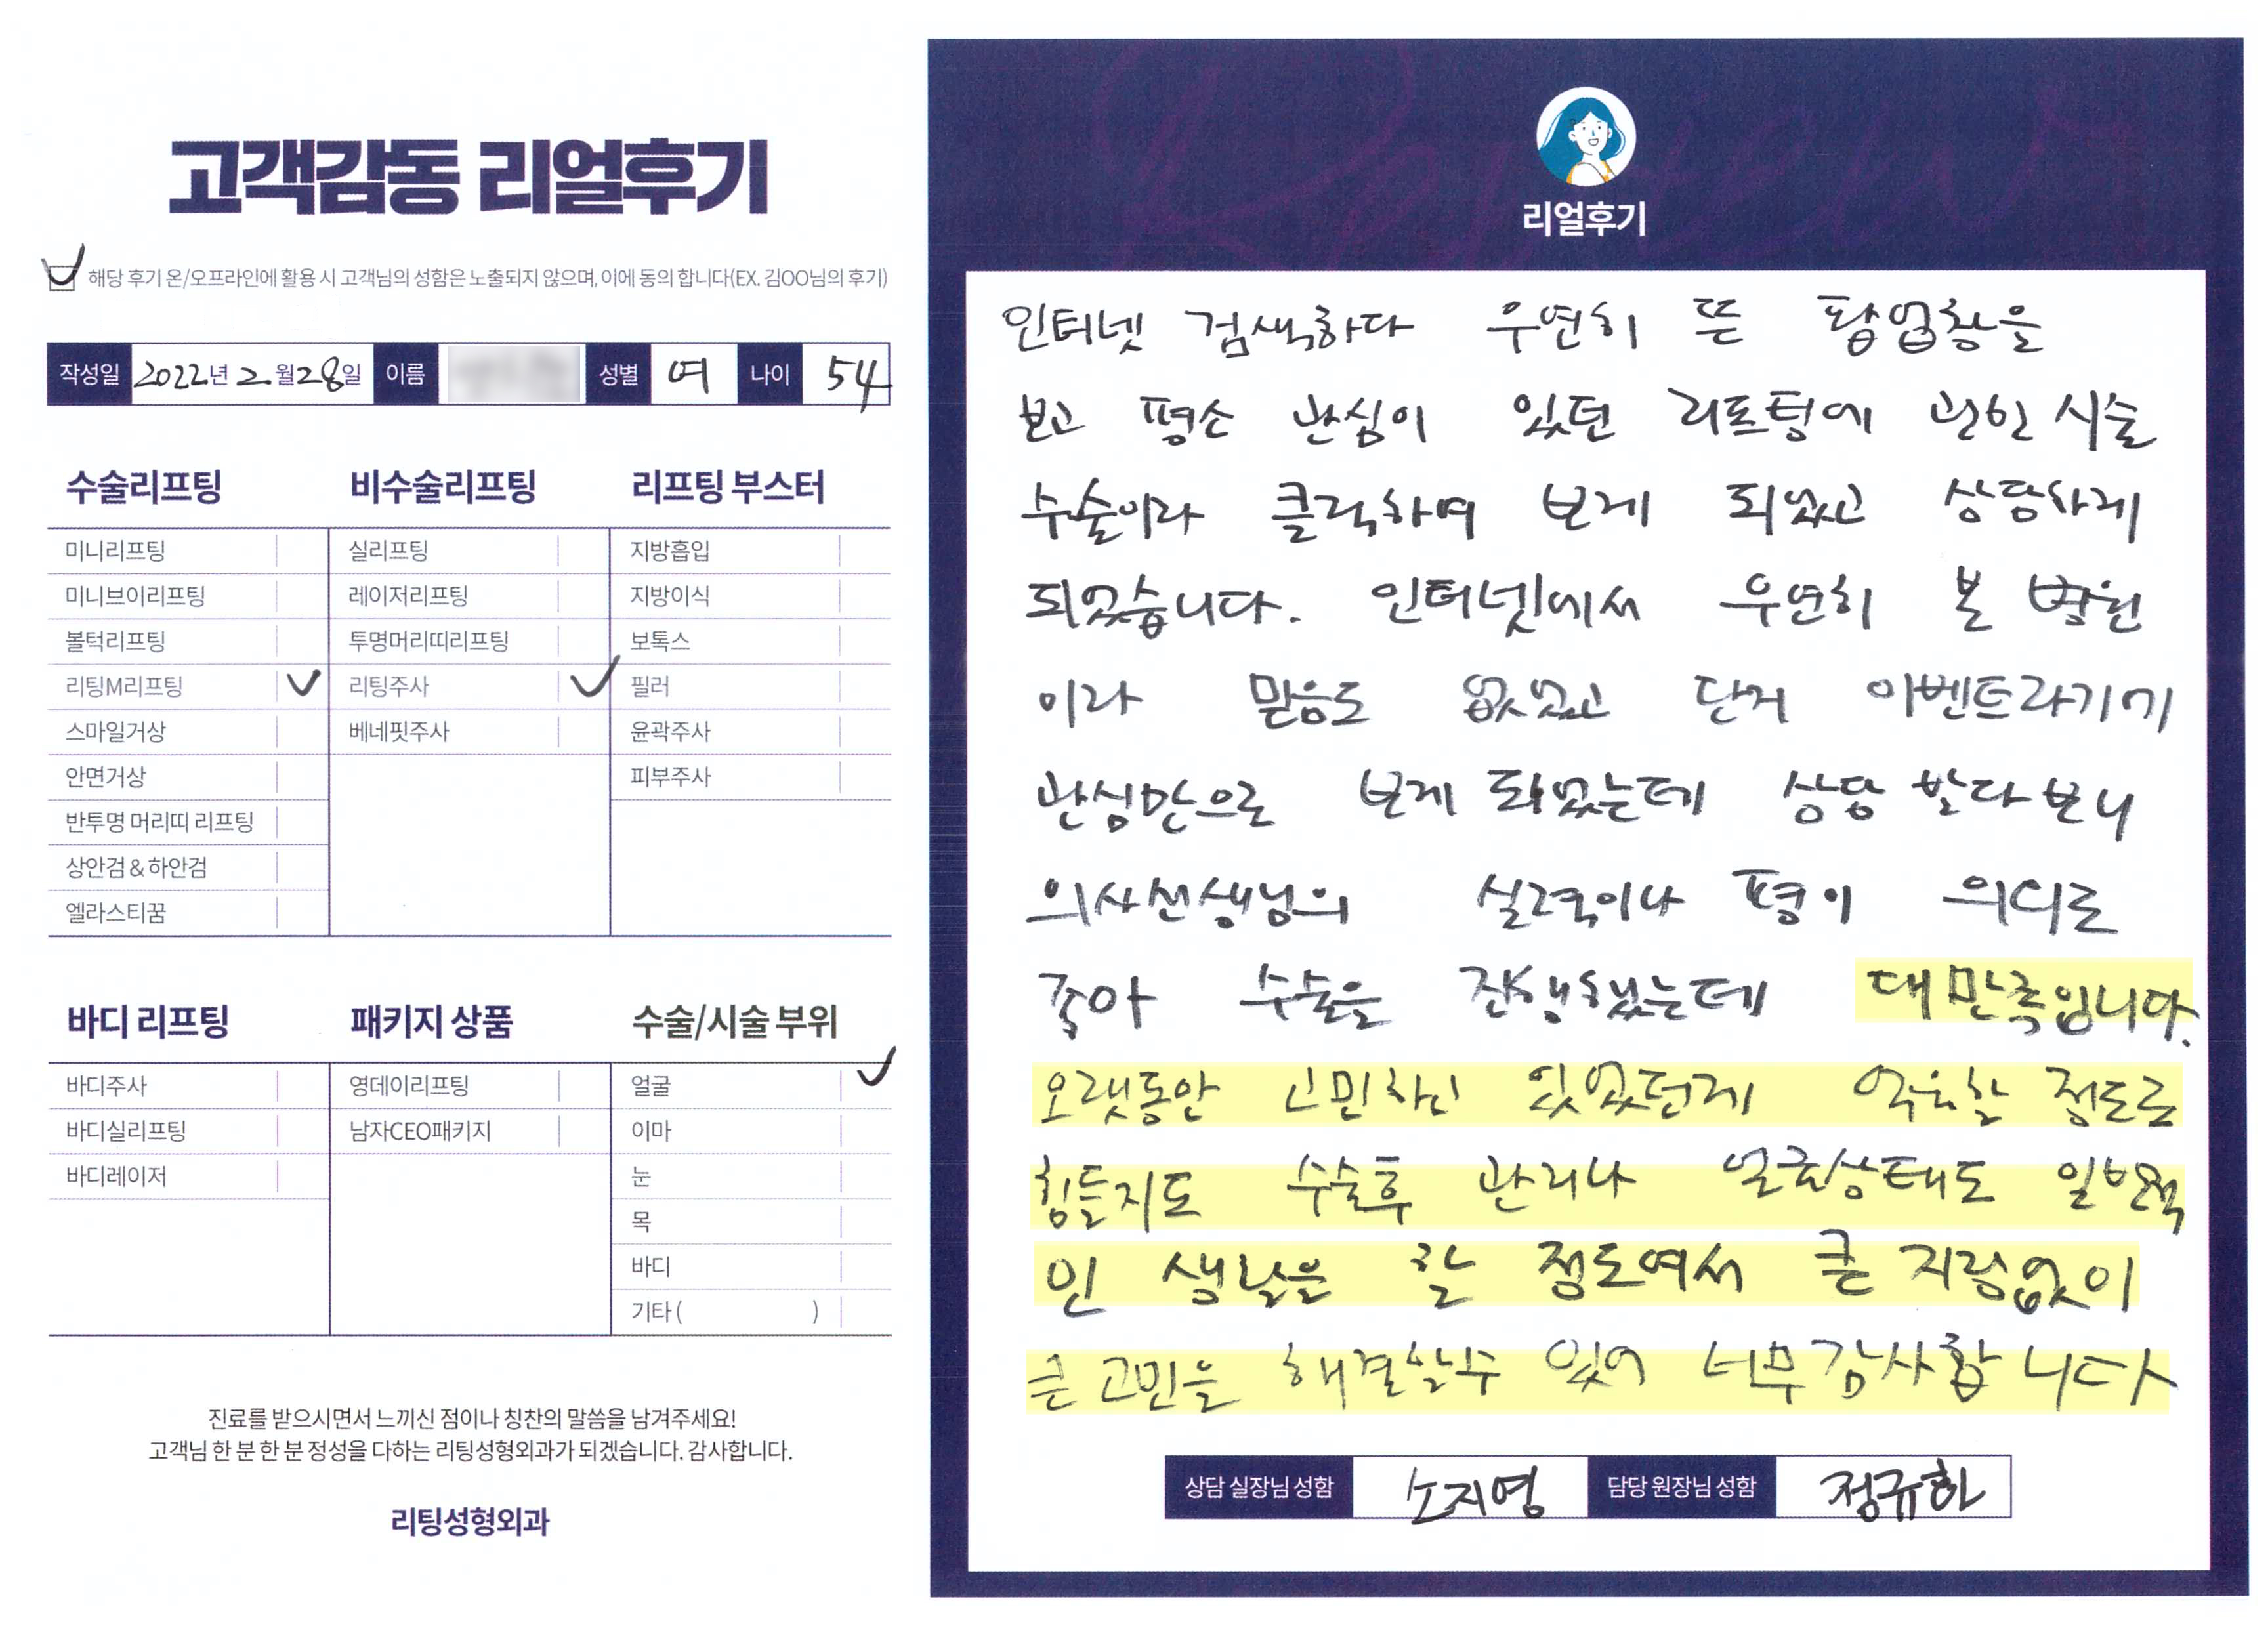 고객감동 리얼후기
해당 후기 온/오프라인에 활용 시 고객님의 성함은 노출되지 않으며, 이에 동의 합니다(EX. 김OO님의 후기)
작성일 2022년 2월 28일 이름 성별 여 나이 54
수술리프팅
미니리프팅
미니브이리프팅
볼턱리프팅
리팅M리프팅
스마일거상
안면거상
반투명 머리띠 리프팅
상안검 & 하안검
엘라스티꿈
비수술리프팅
실리프팅
레이저리프팅
투명머리띠리프팅
리팅주사
베네핏주사
리프팅 부스터
지방흡입
지방이식
보톡스
필러
윤곽주사
피부주사
바디 리프팅
바디주사
바디실리프팅
바디레이저
패키지 상품
영데이리프팅
남자CEO패키지
수술/시술 부위
얼굴
이마
눈
목
바디
기타 ( )
진료를 받으시면서 느끼신 점이나 칭찬의 말씀을 남겨주세요!
고객님 한 분 한 분 정성을 다하는 리팅성형외과가 되겠습니다. 감사합니다.
리팅성형외과
리얼후기
인터넷 검색하다 우연히 뜬 팝업창을
보고 평소 관심이 있던 리프팅에 관한 시술
수술이라 클릭하여 보게 되었고 상담하게
되었습니다. 인터넷에서 우연히 본 병원
이라 믿음도 없었고 단지 이벤트라기에
관심만으로 보게 되었는데 상담 받다보니
의사선생님의 실력이나 평이 의외로
좋아 수술을 진행했는데 대만족입니다.
오랫동안 고민하고 있었던게 억울할 정도로
힘들지도 수술후 관리나 얼굴상태도 일반적
인 생활을 할 정도여서 큰 지장없이
큰 고민을 해결할수 있어 너무 감사합니다
상담 실장님 성함 소지영 담당 원장님 성함 정규화